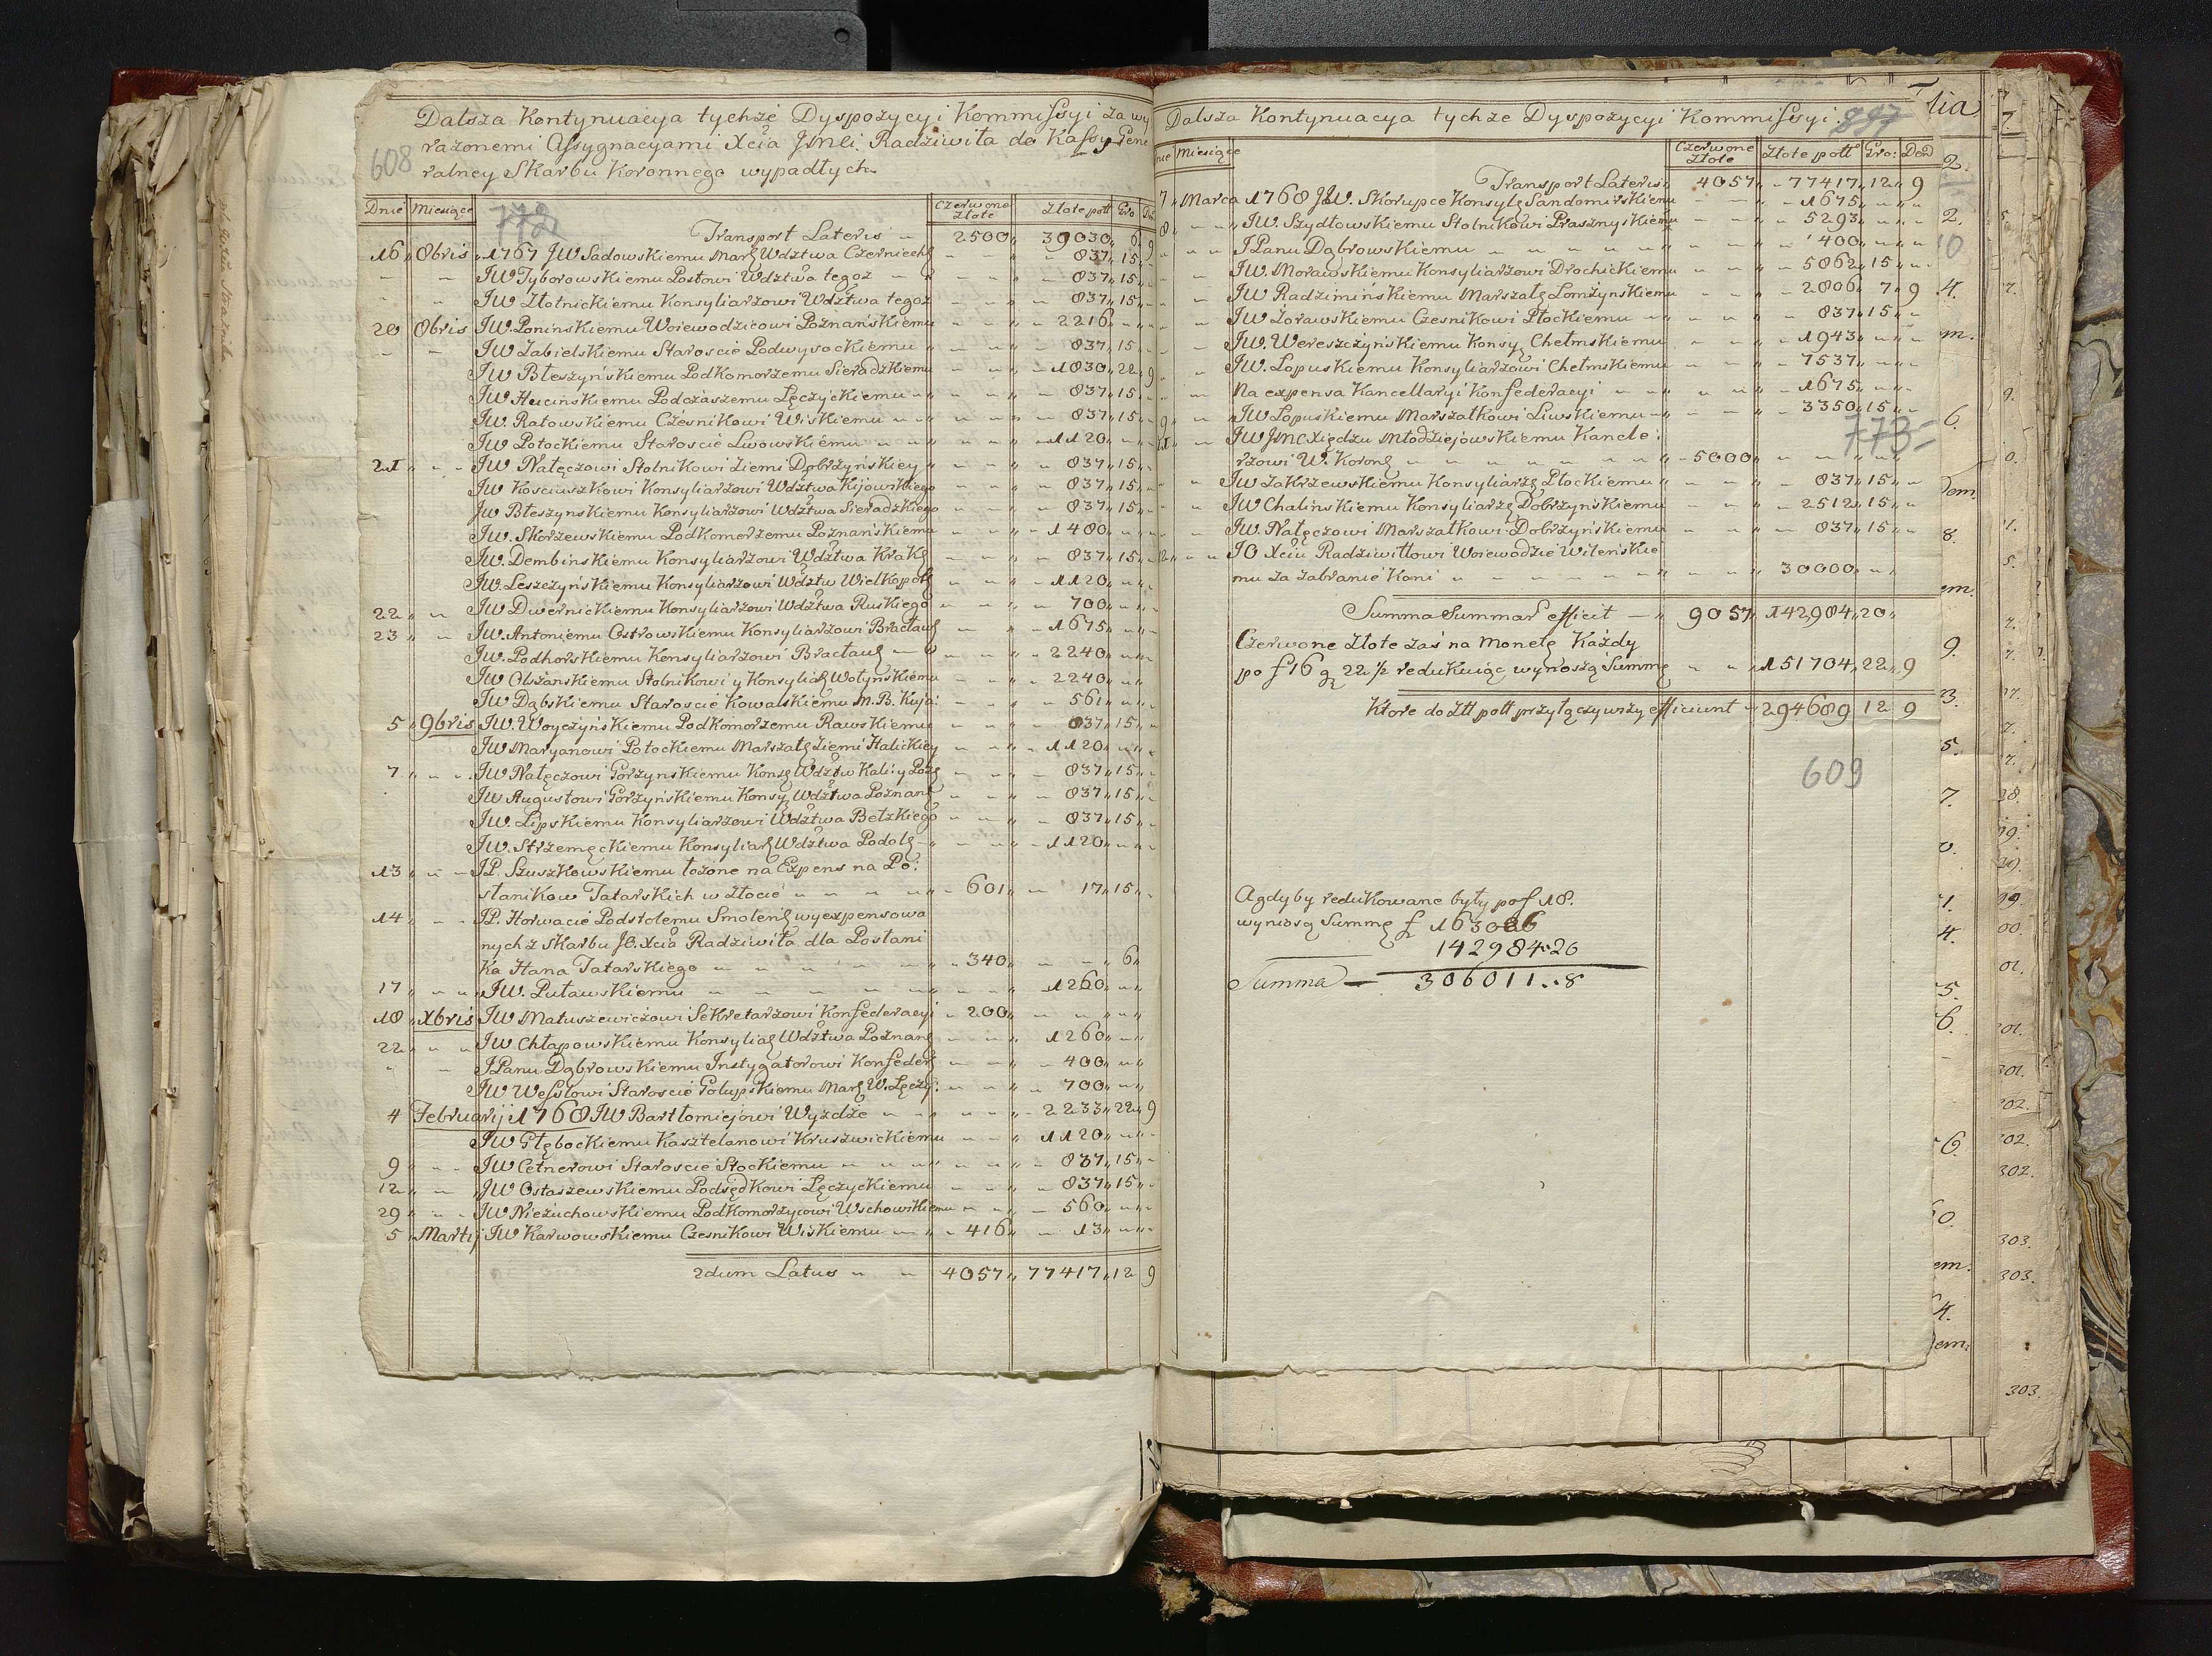 Dalsza Kontynuacya tychże Dyspozycyi Kommissyi za wy
rażonemi Assygnacyami Xcia JMci Radziwiła do Kassy Gene
608 ralney Skarbu Koronnego wypadłych
Dnie Miesiące 772 Czerwone Złote Złote poll Gro
Transport Lateris 2500 39030 6 9
16 8bris 1767 JW Sadowskiemu Mar Wdztwa Czerniech 837 15
JW Tyborowskiemu Posłowi Wdztwa tegoż 837 15
JW Złotnickiemu Konsyliarzowi Wdztwa tegoż 837 15
20 8bris JW. Poninskiemu Woiewodzicowi Poznańskiemu 2216
JW Zabielskiemu Staroscie Podwysockiemu 837 15
JW Błeszyńskiemu Podkomorzemu Sieradzkiemu 1830 22 9
JW Hucińskiemu Podczaszemu Łęczyckiemu 837 15
JW. Ratowskiemu Cześnikowi Wiskiemu 837 15
JW Potockiemu Staroscie Lwowskiemu 1120
21 JW Nałęczowi Stolnikowi Ziemi Dobrzyńskiey 837 15
JW Kosciuszkowi Konsyliarzowi Wdztwa Kijowskiego 837 15
JW Błeszynskiemu Konsyliarzowi Wdztwa Sieradzkiego 837 15
JW. Skorzewskiemu Podkomorzemu Poznańskiemu 1400
JW. Dembinskiemu Konsyliarzowi Wdztwa Krak 837 15
JW. Leszczyńskiemu Konsyliarzowi Wdztw Wielkopol 1120
22 JW Dwernickiemu Konsyliarzowi Wdztwa Ruskiego 700
23 JW. Antoniemu Ostrowskiemu Konsyliarzowi Bracław 1675
JW. Podhorskiemu Konsyliarzowi Bracław 2240
JW Olszańskiemu Stolnikowi y Konsyliar Wołyńskiemu 2240
JW Dąbskiemu Staroscie Kowalskiemu M.B. Kuja: 561
5 9bris JW. Woyczyńskiemu Podkomorzemu Rawskiemu 837 15
JW Maryanowi Potockiemu Marszał Ziemi Halickiey 1120
7 JW Nałęczowi Gorzynskiemu Kons Wdztw Kali: y Poz 837 15
JW Augustowi Gorzyńskiemu Konsy Wdztwa Poznań 837 15
JW. Lipskiemu Konsyliarzowi Wdztwa Bełzkiego 837 15
JW. Strzemęckiemu Konsyliar Wdztwa Podol 1120
13 JP. Szuszkowskiemu łożone na Expens na Po:
słanikow Tatarskich w złocie 601 17 15
14 JP. Horwacie Podstolemu Smoleń wyexpensowa
nych z Skarbu JO. Xcia Radziwiła dla Posłani
Ka Hana Tatarskiego 340 6
17 JW. Puławskiemu 1260
18 Xbris JW Matuszewiczowi Sekretarzowi Konfederacyi 200
22 JW Chłapowskiemu Konsyliar Wdztwa Poznań 1260
JPanu Dąbrowskiemu Instygatorowi Konfeder 400
JW Wesslowi Staroscie Golupskiemu Mar W. Łęczy: 700
4 Februarij 1768 JW Bartłomiejowi Wyżdże 2233 22 9
JW Głębockiemu Kasztelanowi Kruszwickiemu 1120
9 JW Cetnerowi Staroscie Stockiemu 837 15
12 JW Ostaszewskiemu Podsędkowi Łęczyckiemu 837 15
29 JW Nieżuchowskiemu Podkomorzycowi Wschowskiemu 560
5 Martij JW Karwowskiemu Czesnikowi Wiskiemu 416 13
2dum Latus 4057 77417 12 9
Dalsza Kontynuacya tychże Dyspozycyi Kommissyi. 887
Miesiące Czerwone Złote Złote poll Gro: Den
Transport Lateris 4057 77417 12 9
7 Marca 1768 JW. Skorupce Konsyl Sandomirskiemu 1675
8 JW. Szydłowskiemu Stolnikowi Prasznyskiemu 5293
JPanu Dąbrowskiemu 400
JW. Morawskiemu Konsyliarzowi Drochickiemu 5862 15
JW Radzimińskiemu Marszał Łomżynskiemu 2806 7 9
JW Żorawskiemu Czesnikowi Płockiemu 837 15
JW. Wereszczyńskiemu Konsy Chełmskiemu 1943
JW. Łopuskiemu Konsyliarzowi Chełmskiemu 7537
Na expensa Kancellaryi Konfederacyi 1675
9 JW Łopuskiemu Marszałkowi Liwskiemu 3350 15
JW JMC Xiędzu Młodziejowskiemu Kancle: 773
rzowi W. Koron 5000
JW Zakrzewskiemu Konsyliarz Płockiemu 837 15
JW Chalińskiemu Konsyliarz Dobrzyńskiemu 2512 15
JW. Nałęczowi Marszałkowi Dobrzyńskiemu 837 15
JO Xciu Radziwiłłowi Woiewodzie Wileńskie
mu za zabranie Koni 30000
Summa Summar efficit 9057 142984 20
Czerwone Złote zaś na Monetę Każdy
po f 16 g 22 1/2 redukuiąc wynoszą Summę 151704 22 9
Ktore do Złł poll przyłączywszy efficiunt 294689 12 9
609
A gdyby redukowane były po f 18.
wyniosą Summę f 163026
142984 20
Summa 306011..8